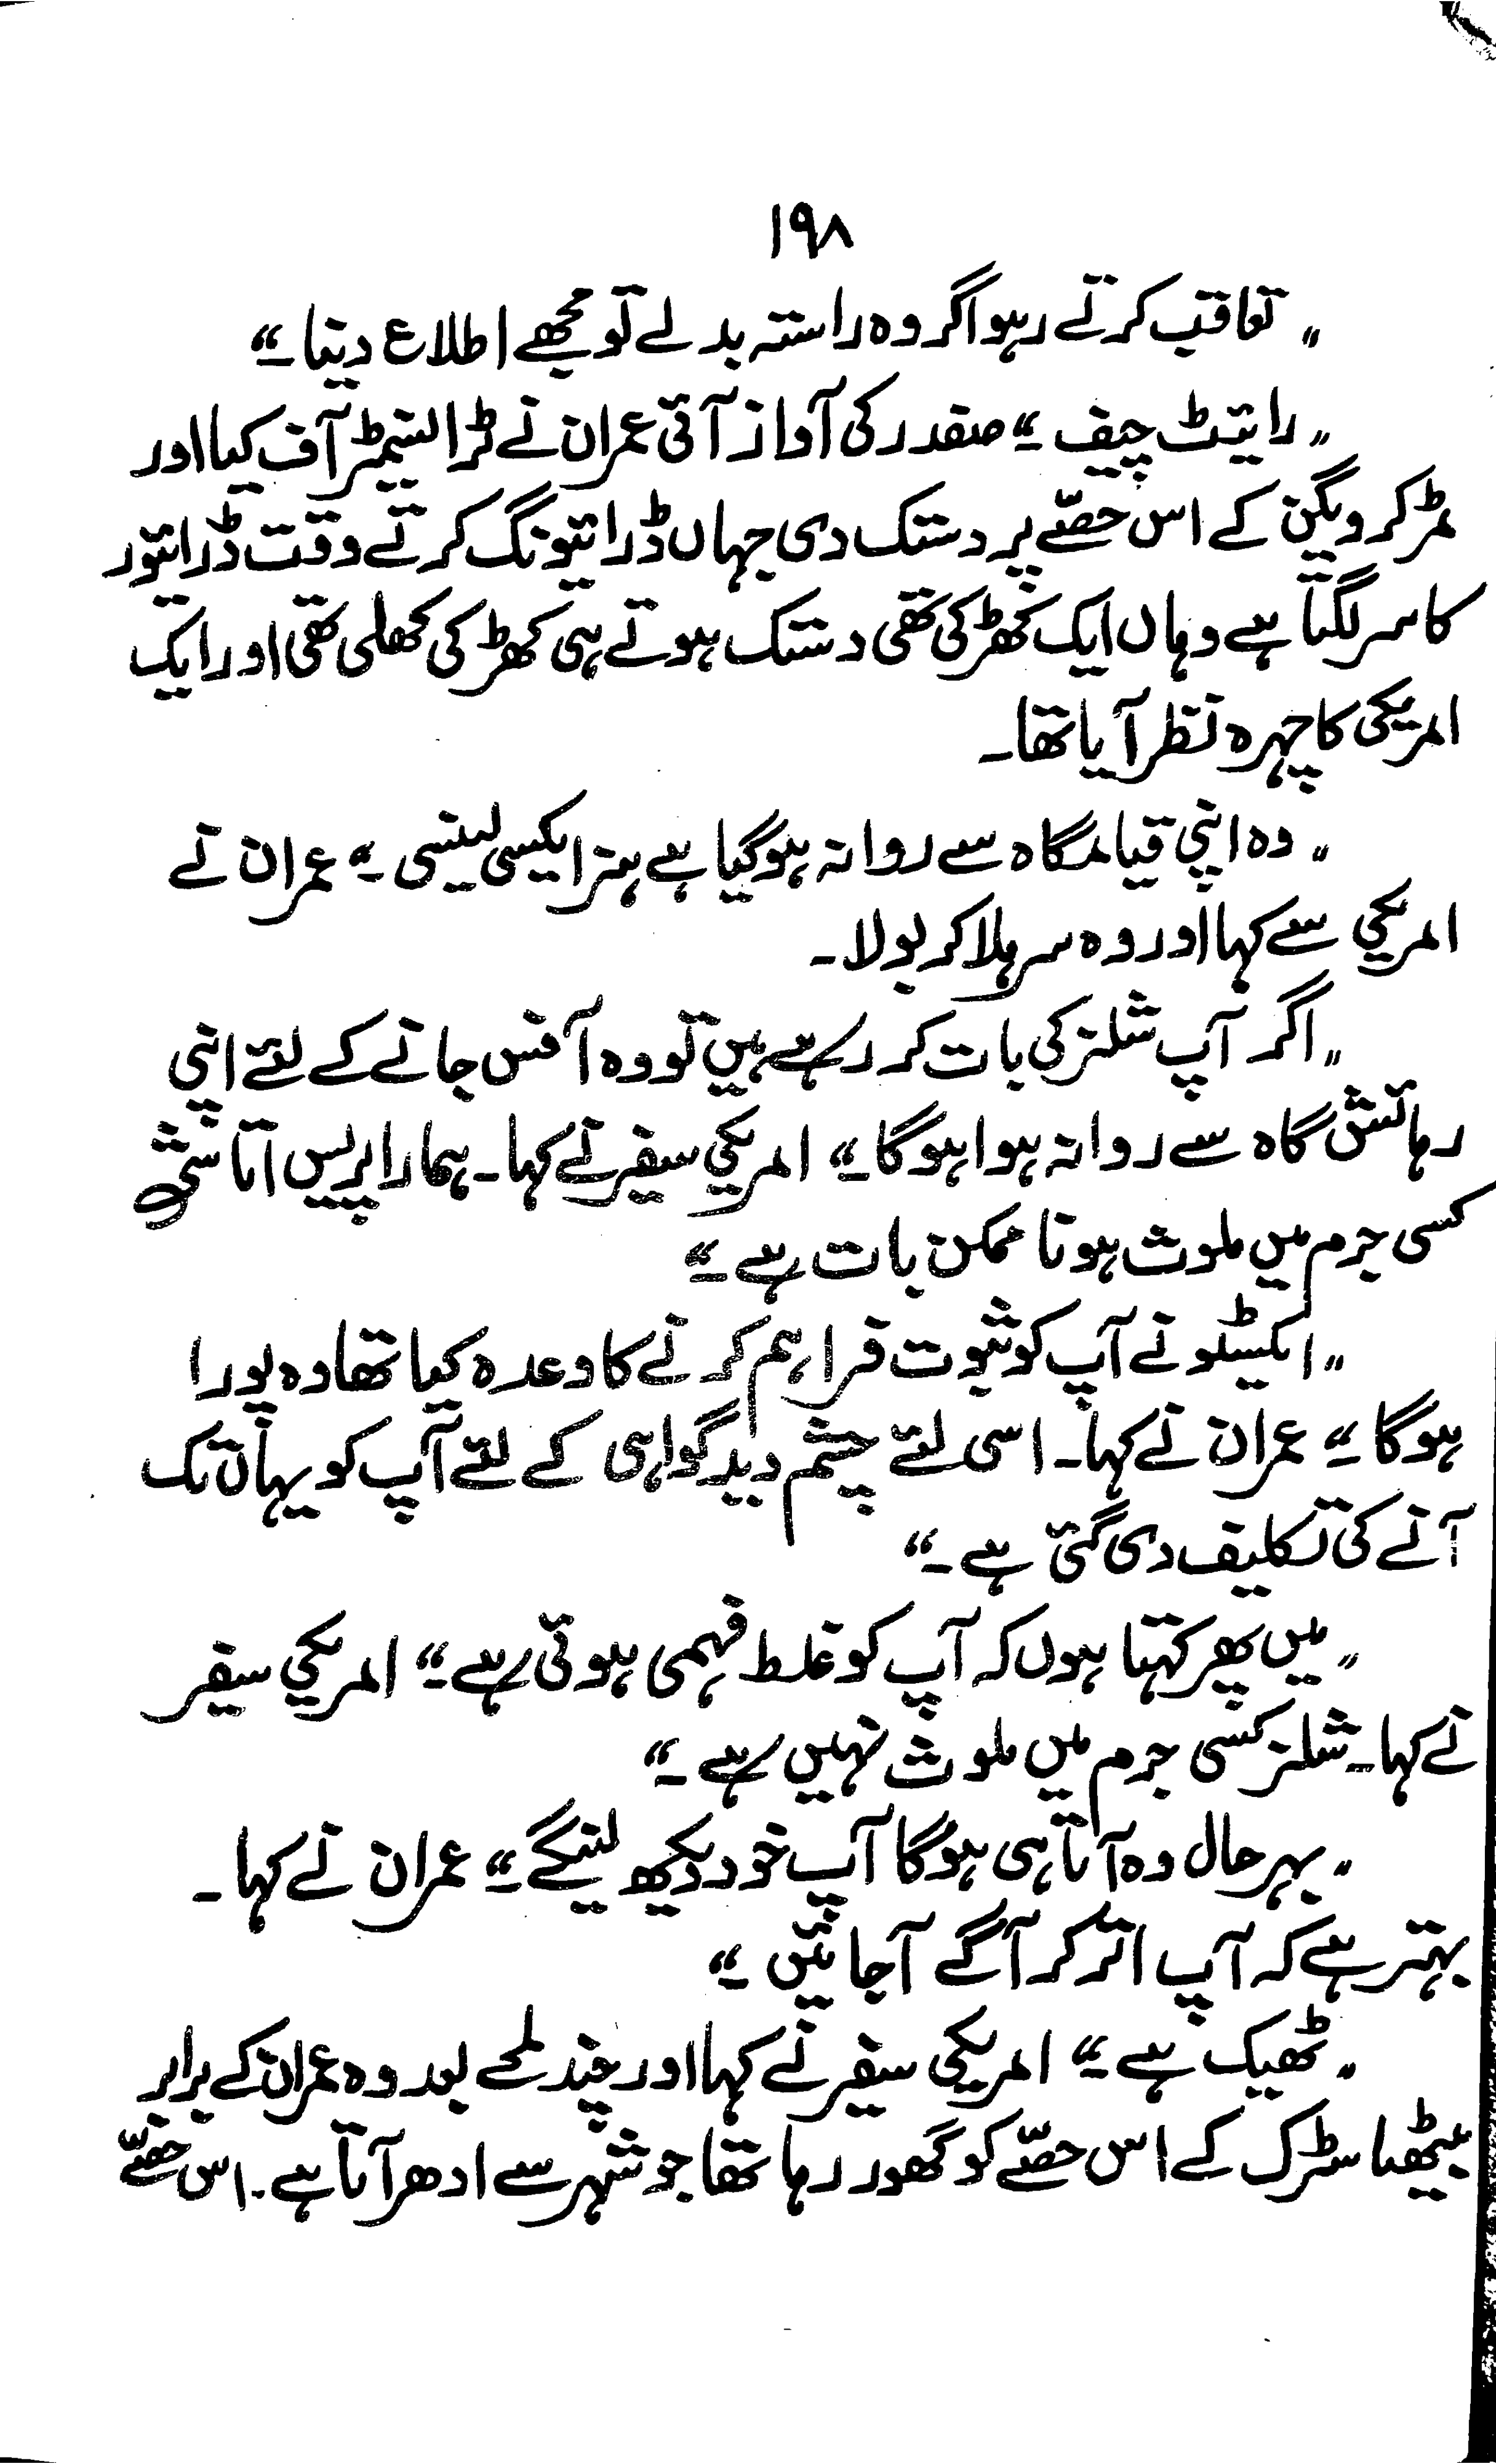 ۱۹۸
„ تعاقب کرتے رہو اگر وہ راستہ بدلے تو مجھے اطلاع دینا ۔“
„ رائیٹ چیف ۔“ صفدر کی آواز آئی عمران نے ٹرانسیمٹر آف کیا اور
مڑ کر ویگن کے اس حصّے پر دستک دی جہاں ڈرائیونگ کرتے وقت ڈرائیور
کا سر لگتا ہے وہاں ایک کھڑکی تھی دستک ہوتے ہی کھڑکی کھلی تھی اور ایک
امریکی کا چہرہ نظر آیا تھا ۔
„ وہ اپنی قیامگاہ سے روانہ ہو گیا ہے ہز ایکسی لینسی ۔“ عمران نے
امریکی سے کہا اور وہ سر ہلا کر بولا ۔
„ اگر آپ شلز کی بات کر رہے ہیں تو وہ آفس جانے کے لئے اپنی
رہائش گاہ سے روانہ ہوا ہو گا ۔“ امریکی سفیر نے کہا ۔ ہمارا پریس اتاشی
کسی جرم میں ملوث ہونا ممکن بات ہے ۔“
„ ایکسٹو نے آپ کو ثبوت فراہم کرنے کا وعدہ کیا تھا وہ پورا
ہو گا ۔“ عمران نے کہا ۔ اسی لئے چشم دید گواہی کے لئے آپ کو یہاں تک
آنے کی تکلیف دی گئی ہے ۔“
„ میں پھر کہتا ہوں کہ آپ کو غلط فہمی ہوئی ہے ۔“ امریکی سفیر
نے کہا ۔ شلز کسی جرم میں ملوث نہیں ہے ۔“
„ بہر حال وہ آتا ہی ہو گا آپ خود دیکھ لینگے ۔“ عمران نے کہا ۔
بہتر ہے کہ آپ اتر کر آگے آجائیں ۔“
„ ٹھیک ہے ۔“ امریکی سفیر نے کہا اور چند لمحے بعد وہ عمران کے برابر
بیٹھا سڑک کے اس حصّے کو گھور رہا تھا جو شہر سے ادھر آتا ہے ۔ اس حصّے